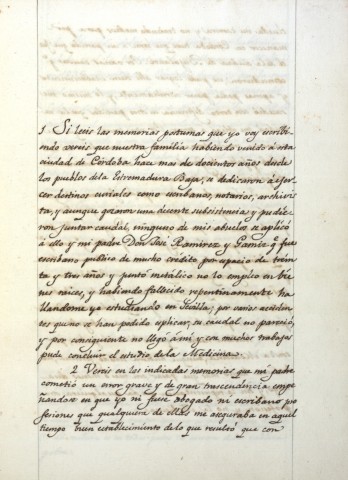 1 Si leeis las memorias postumas que yo voy escribi-
endo vereis que nuestra familia habiendo venido á esta
ciudad de Córdoba hace mas de docientos años desde
los pueblos de la Estremadura Baja, se dedicaron á ejer-
cer destinos curiales como escribanos, notarios, archivis
ta, y aunque gozaron una decente subsistencia y pudie-
ron juntar caudal, ninguno de mis abuelos se aplicó
á ello y mi padre Don José Ramirez y Gamiz q.e fue
escribano publico de mucho crédito por espacio de trein
ta y tres años y juntó metálico no lo empleo en bie
nes raices, y habiendo fallecido repentinamente ha
llandome yo estudiando en Sevilla, por varios acciden-
tes que no se han podido esplicar, su caudal no pareció,
y por consiguiente no llegó á mi y con muchos trabajos
pude concluir el estudio de la Medicina.
2 Vereis en las indicadas memorias que mi padre
cometió un error grave y de gran trascendencia empe
ñandose en que yo ni fuese abogado ni escribano, pro
fesiones que qualquiera de ellas me aseguraba en aquel
tiempo buen establecimiento de lo que resultó que con